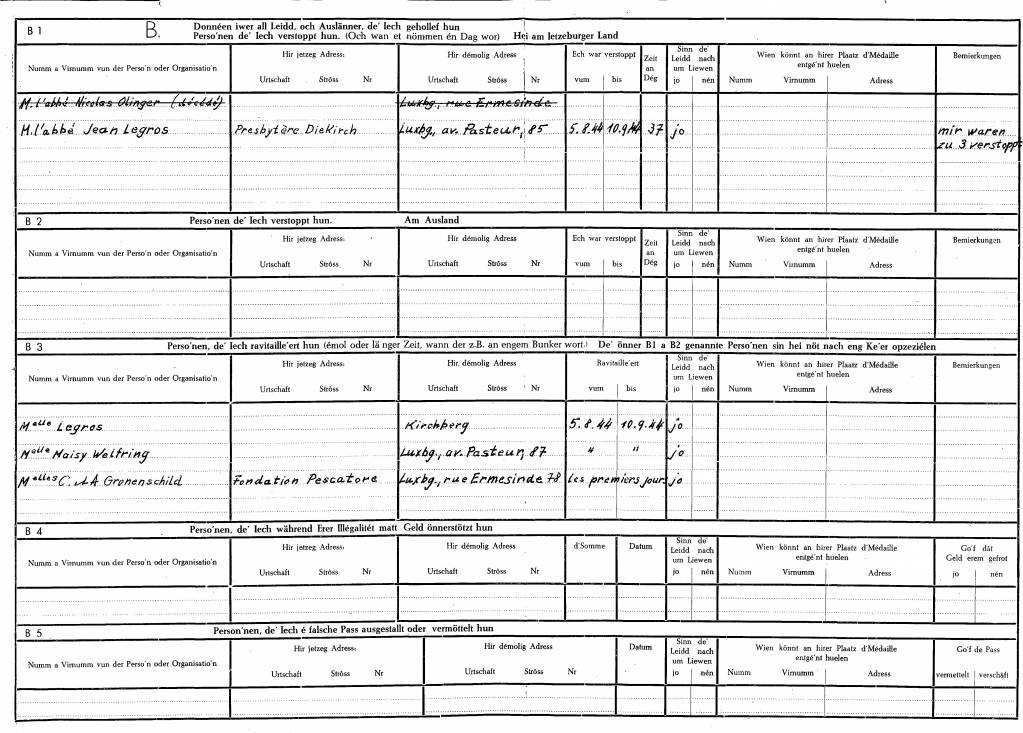 B 1 B. Donnéen iwer all Leidd, och Auslänner, de' Iech gehollef hun
Perso'nen de' Iech verstoppt hun. (Och wan et nömmen én Dag wor) Hei am letzeburger Land
Numm a Virnumm vun der Perso'n oder Organisatio'n
Hir jetzeg Adress:
Urtschaft Ströss Nr
Hir démolig Adress:
Urtschaft Ströss Nr
Ech war verstoppt
vum bis
Zeit
an
Dég
Sinn de'
Leidd nach
um Liewen
jo nén
Wien könnt an hirer Plaatz d'Médaille
entgé'nt huelen
Numm Virnumm Adress
Bemierkungen
M. l'abbé Nicolas Olinger (décédé) Luxbg., rue Ermesinde
M. l'abbé Jean Legros Presbytère Diekirch Luxbg., av. Pasteur, 85 5.8.44 10.9.44 37 jo mir waren
zu 3 verstoppt
B 2 Perso'nen de' Iech verstoppt hun. Am Ausland
Numm a Virnumm vun der Perso'n oder Organisatio'n
Hir jetzeg Adress:
Urtschaft Ströss Nr
Hir démolig Adress
Urtschaft Ströss Nr
Ech war verstoppt
vum bis
Zeit
an
Dég
Sinn de'
Leidd nach
um Liewen
jo nén
Wien könnt an hirer Plaatz d'Médaille
entgé'nt huelen
Numm Virnumm Adress
Bemierkungen
B 3 Perso'nen, de' Iech ravitaille'ert hun (émol oder länger Zeit, wann der z.B. an engem Bunker wort.) De' önner B1 a B2 genannte Perso'nen sin hei nöt nach eng Ke'er opzeziélen
Numm a Virnumm vun der Perso'n oder Organisatio'n
Hir jetzeg Adress:
Urtschaft Ströss Nr
Hir démolig Adress
Urtschaft Ströss Nr
Ravitaille'ert
vum bis
Sinn de'
Leidd nach
um Liewen
jo nén
Wien könnt an hirer Plaatz d'Médaille
entgé'nt huelen
Numm Virnumm Adress
Bemierkungen
Melle Legros Kirchberg 5.8.44 10.9.44 jo
Melle Maisy Welfring Luxbg., av. Pasteur, 87 " " jo
Melles C. & A Gronenschild Fondation Pescatore Luxbg., rue Ermesinde 78 les premiers jour jo
B 4 Perso'nen, de' Iech während Erer Illégalitét matt Geld önnerstötzt hun
Numm a Virnumm vun der Perso'n oder Organisatio'n
Hir jetzeg Adress:
Urtschaft Ströss Nr
Hir démolig Adress
Urtschaft Ströss Nr
d'Somme Datum
Sinn de'
Leidd nach
um Liewen
jo nén
Wien könnt an hirer Plaatz d'Médaille
entgé'nt huelen
Numm Virnumm Adress
Go'f dât
Geld erem gefrot
jo nén
B 5 Person'nen, de' Iech é falsche Pass ausgestallt oder vermöttelt hun
Numm a Virnumm vun der Perso'n oder Organisatio'n
Hir jetzeg Adress:
Urtschaft Ströss Nr
Hir démolig Adress
Urtschaft Ströss Nr
Datum
Sinn de'
Leidd nach
um Liewen
jo nén
Wien könnt an hirer Plaatz d'Médaille
entgé'nt huelen
Numm Virnumm Adress
Go'f de Pass
vermettelt verschâft